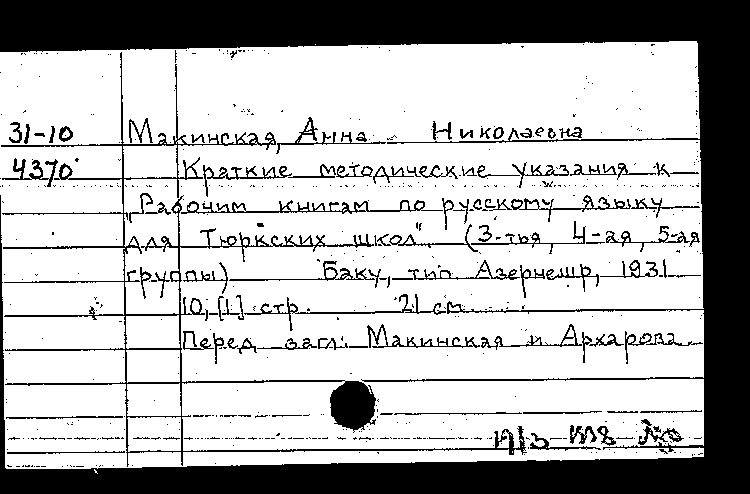 31-10 Макинская, Анна Николаевна
4370 Краткие методические указания к
"Рабочим книгам по русскому языку
для Тюркских школ". (3-тья, 4-ая, 5-ая
группы) Баку, тип. Азернешр, 1931
10, [1] стр. 21 см.
Перед загл: Макинская и Архарова.